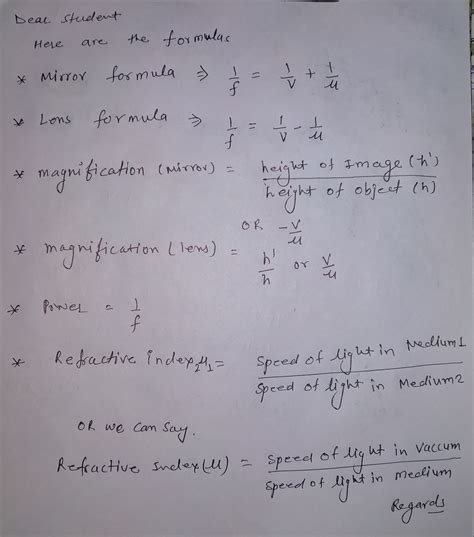 Dear Student
Here are the formulas
* Mirror formula ⇒ 1/f = 1/v + 1/u
* Lens formula ⇒ 1/f = 1/v - 1/u
* magnification (Mirror) = height of Image (h') / height of object (h)
OR -v/u
* magnification (lens) = h'/h or v/u
* Power = 1/f
* Refractive index ₂μ₁ = Speed of light in Medium1 / Speed of light in Medium2
OR we can say.
Refractive Index (μ) = Speed of light in Vaccum / Speed of light in medium
Regards